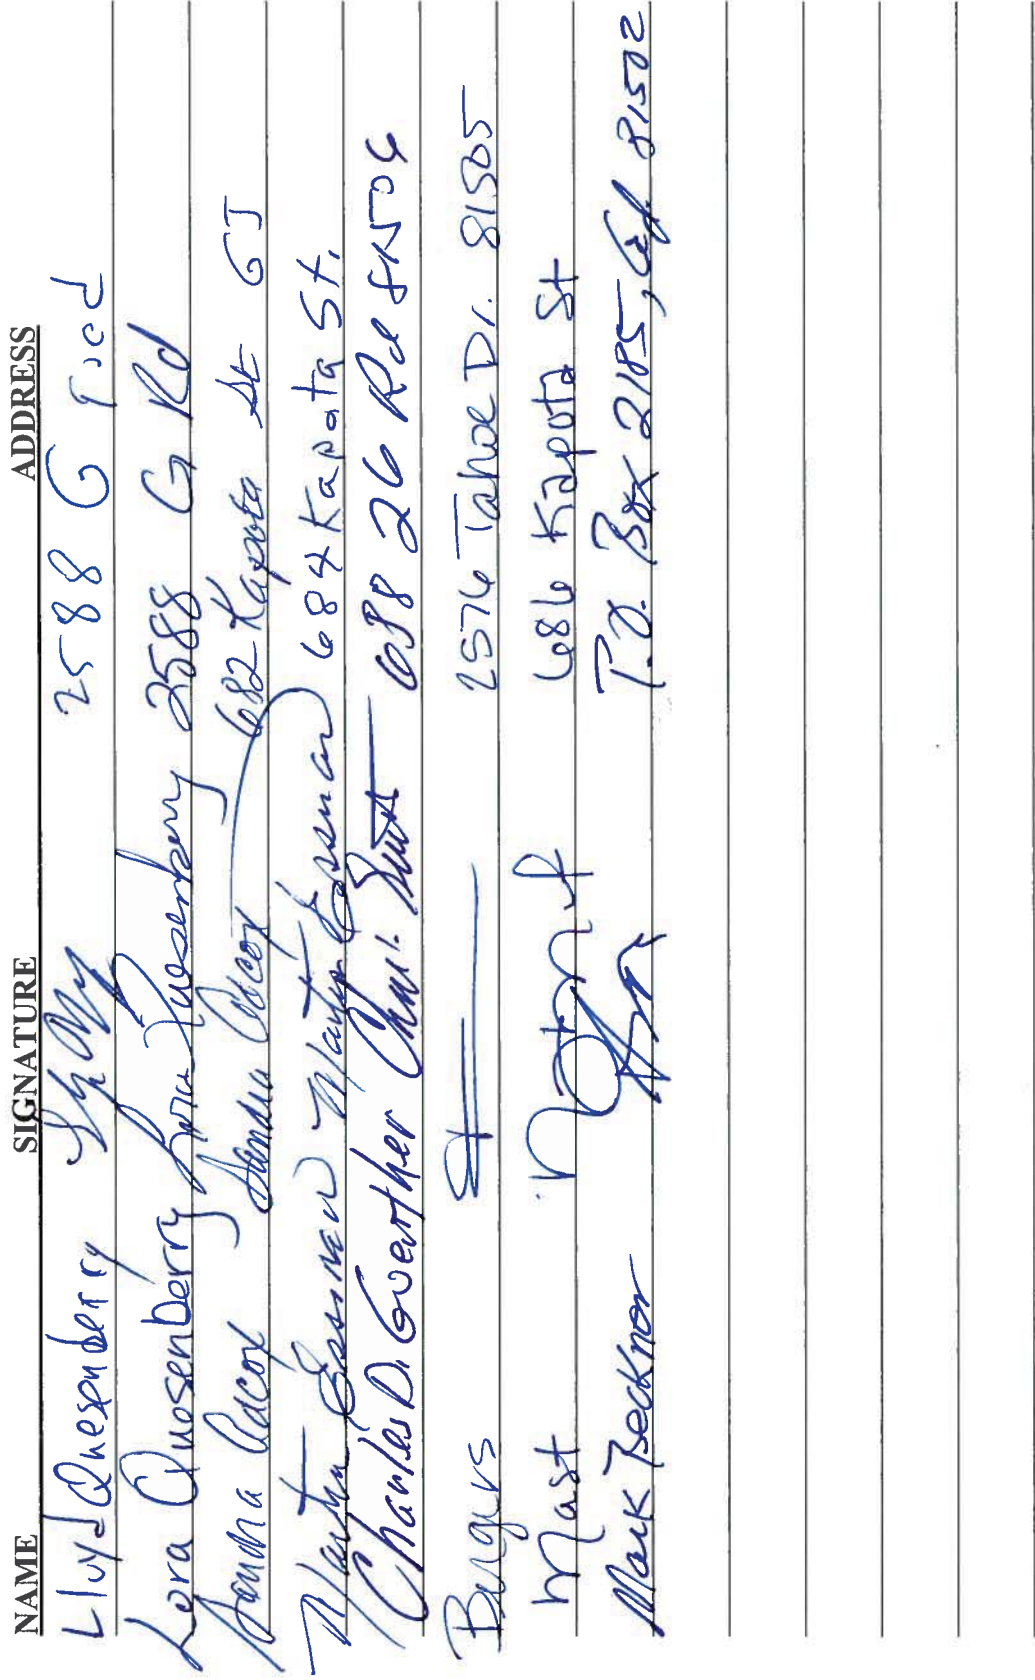 NAME SIGNATURE ADDRESS
Lloyd Quesenberry 2588 G road
Lora Quesenberry Lora Quesenberry 2588 G Rd
Sandra Adcox Sandra Adcox 682 Kapota St GJ
Martin Essman Martin Essman 684 Kapota St.
Charles D. Guerther 638 26 Rd 81506
Burgers 2576 Tahoe Dr. 81505
Mast 686 Kapota St
Mark Becknor P.O. Box 2185, 81502